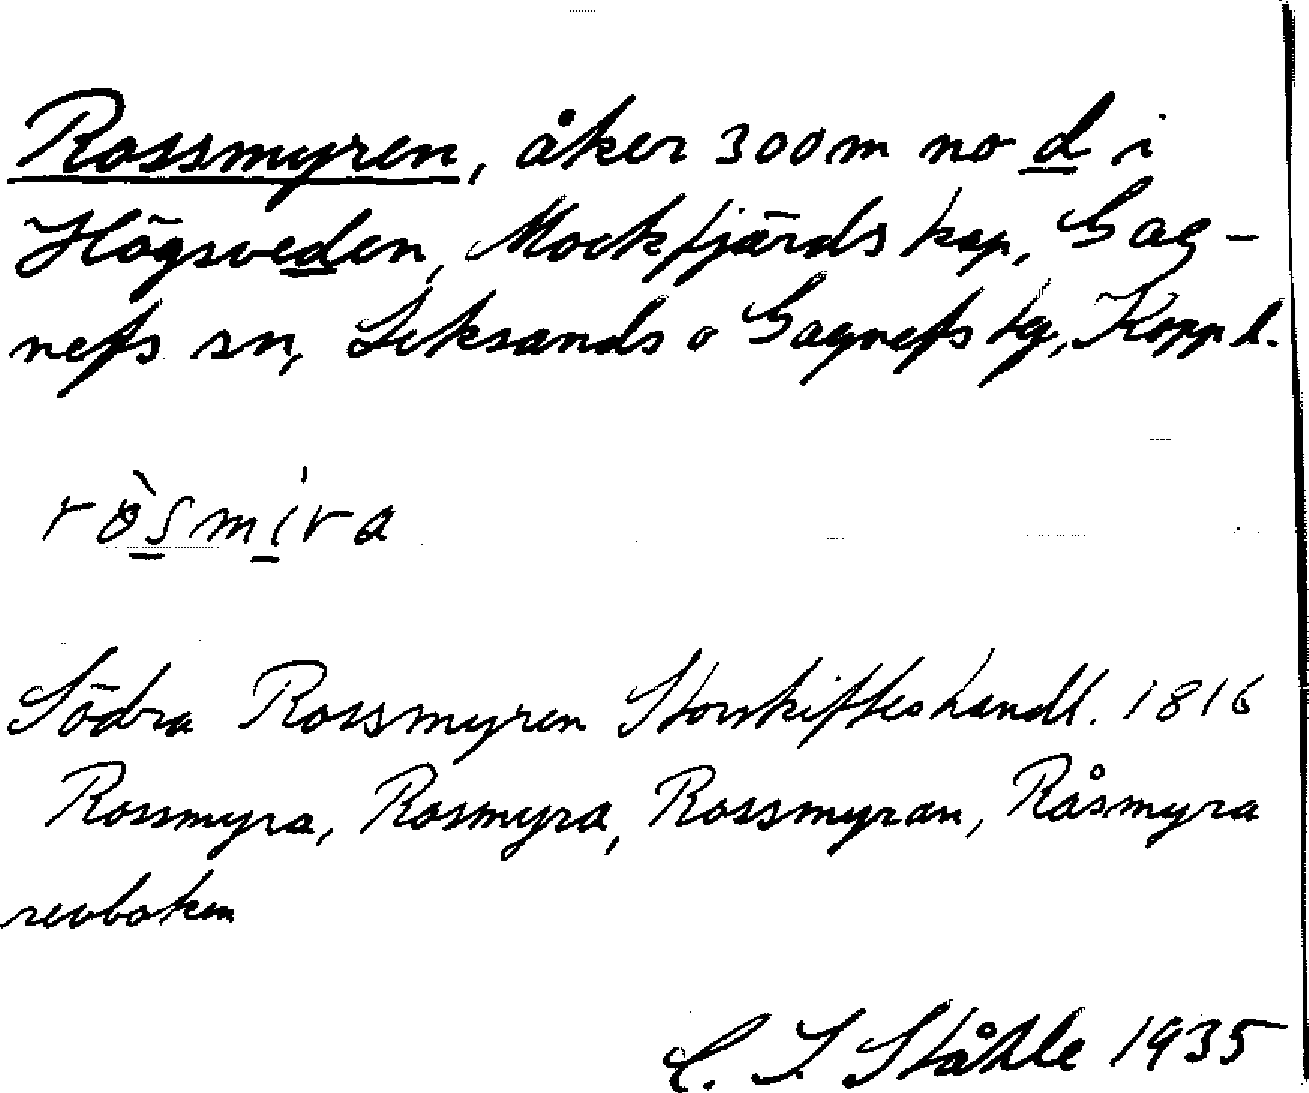 Rossmyren, åker 300 m no d i
Högsveden, Mockfjärds kap, Gag-
nefs sn, Leksands o Gagnefs tg, Kopp. l.
ròsmira
Södra Rossmyren Storskifteshandl. 1816
Rossmyra, Rosmyra, Rossmyran, Råsmyra
revboken
C. I. Ståhle 1935